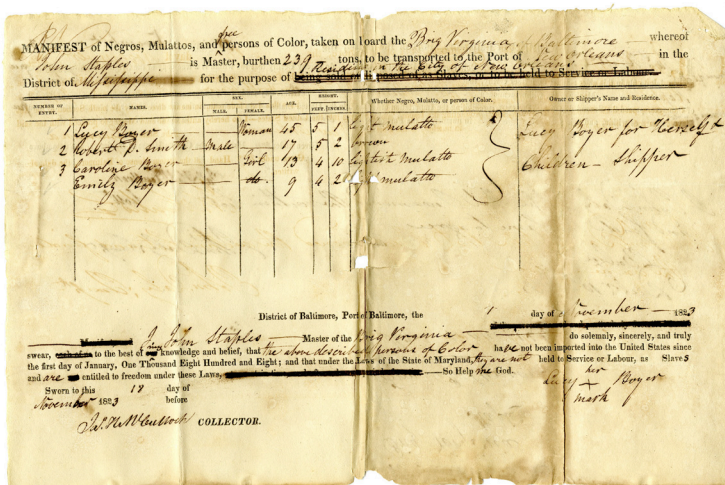 free
MANIFEST of Negros, Mulattos, and persons of Color, taken on board the Brig Virginia, Baltimore whereof
John Staples is Master, burthen 239 tons, to be transported to the Port of New Orleans in the
District of Mississippi for the purpose of Residing in the City of New Orleans
NUMBER OF ENTRY. NAMES. SEX. MALE. FEMALE. AGE. HEIGHT. FEET INCHES. Whether Negro, Mulatto, or person of Color. Owner or Shipper's Name and Residence.
1 Lucy Boyer Woman 45 5 1 light mulatto Lucy Boyer for Herself &
2 Robert D. Smith Male 17 5 2 brown
3 Caroline Boyer Girl 13 4 10 lightest mulatto Children - Shipper
Emily Boyer do. 9 4 2 light mulatto
District of Baltimore, Port of Baltimore, the 1 day of November 1823
John Staples Master of the Brig Virginia do solemnly, sincerely, and truly
swear, to the best of knowledge and belief, that the above described persons of Color have not been imported into the United States since
the first day of January, One Thousand Eight Hundred and Eight; and that under the Laws of the State of Maryland, they are not held to Service or Labour, as Slaves
and are entitled to freedom under these Laws, So Help me God.
Sworn to this 18 day of
November 1823 before
Jas. H. McCulloch COLLECTOR.
her
Lucy + Boyer
mark